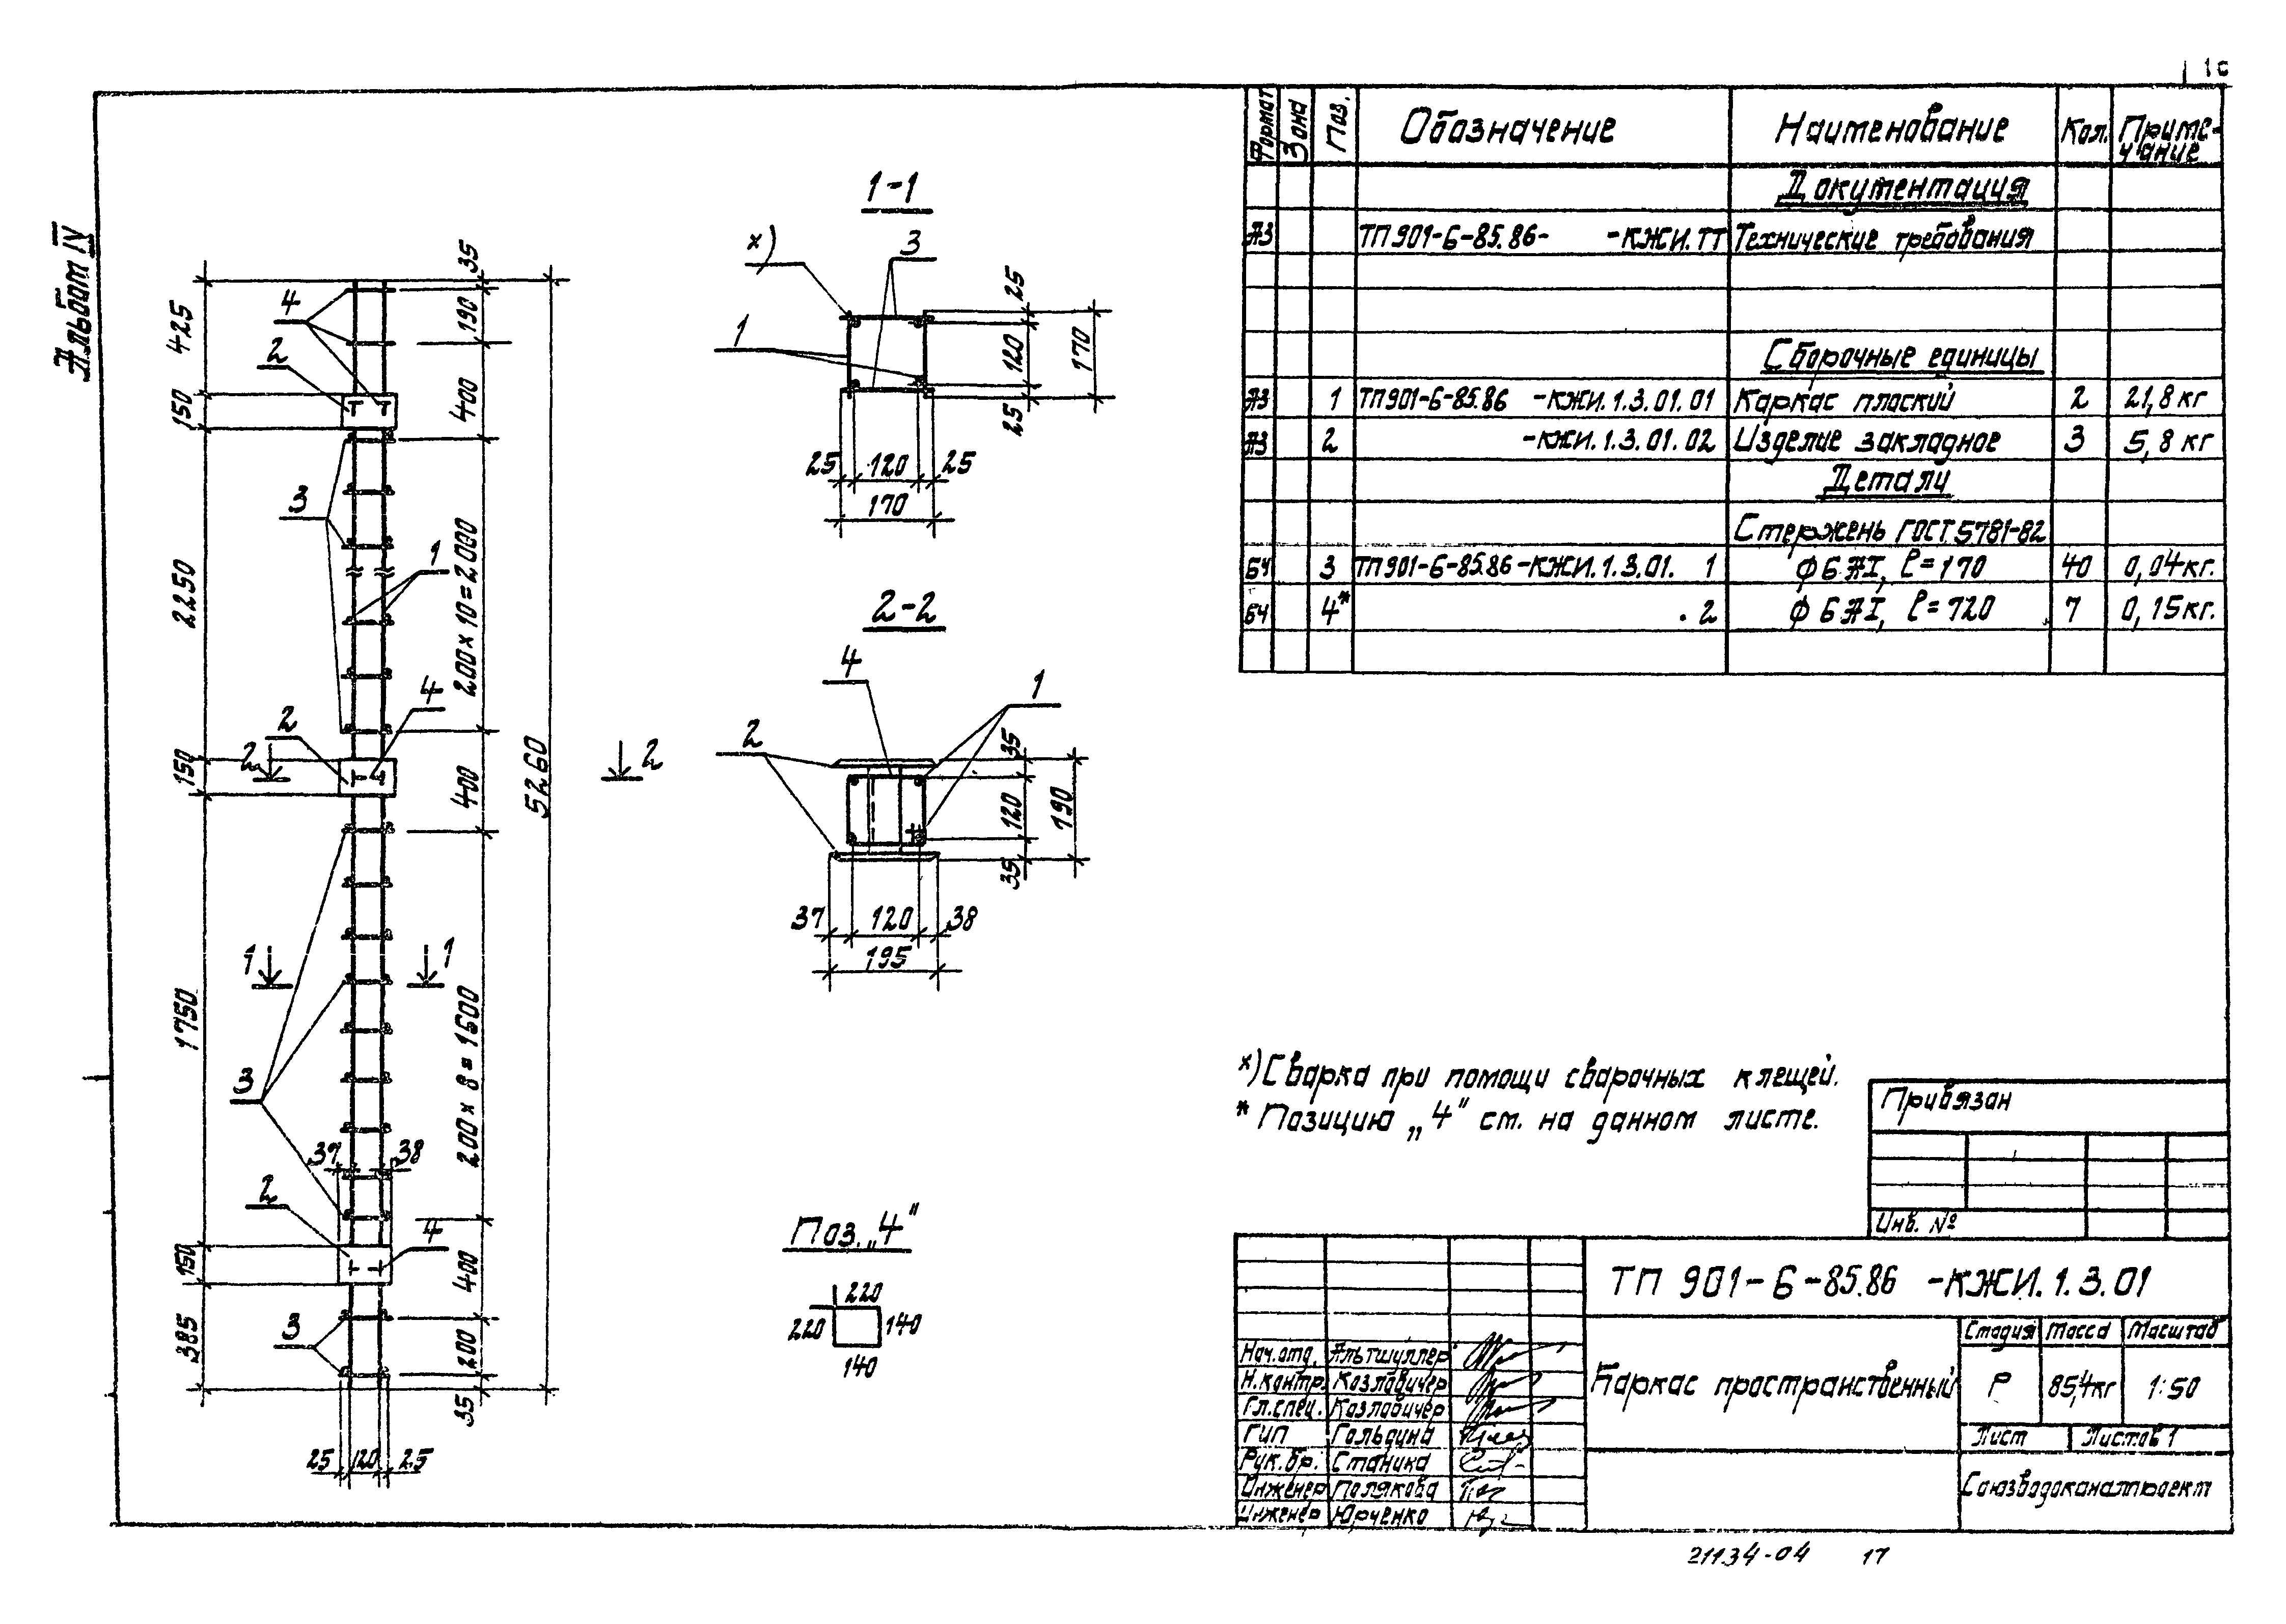 Альбом IV
1с
Формат Зона Поз. Обозначение Наименование Кол. Приме-
чание
Документация
А3 ТП 901-6-85.86- -КЖИ.ТТ Технические требования
Сборочные единицы
А3 1 ТП901-6-85.86 -КЖИ.1.3.01.01 Каркас плоский 2 21,8 кг
А3 2 -КЖИ.1.3.01.02 Изделие закладное 3 5,8 кг
Детали
Стержень ГОСТ 5781-82
БЧ 3 ТП901-6-85.86-КЖИ.1.3.01. 1 ф6АI, ℓ=170 40 0,04кг.
БЧ 4* .2 ф6АI, ℓ=720 7 0,15кг.
425
150
2250
150
1750
150
385
35
190
400
200×10=2000
400
200×8=1600
400
200
35
5260
4
2
3
1
4
2
2
2
3
1
1
37
38
2
4
3
25 120 25
1-1
х)
3
1
25
120
170
25
25 120 25
170
2-2
4
1
2
35
120
190
35
37 120 38
195
Поз. „4"
220
220
140
140
х) Сварка при помощи сварочных клещей.
* Позицию „4" см. на данном листе.
Привязан
Инв. №
ТП 901-6-85.86 -КЖИ.1.3.01
Каркас пространственный
Стадия Масса Масштаб
Р 85,4кг 1:50
Лист Листов 1
Союзводоканалпроект
Нач.отд. Альтшуллер
Н.контр. Козловичер
Гл.спец. Козловичер
ГИП Гольдина
Рук.бр. Станика
Инженер Полякова
Инженер Юрченко
21134-04 17